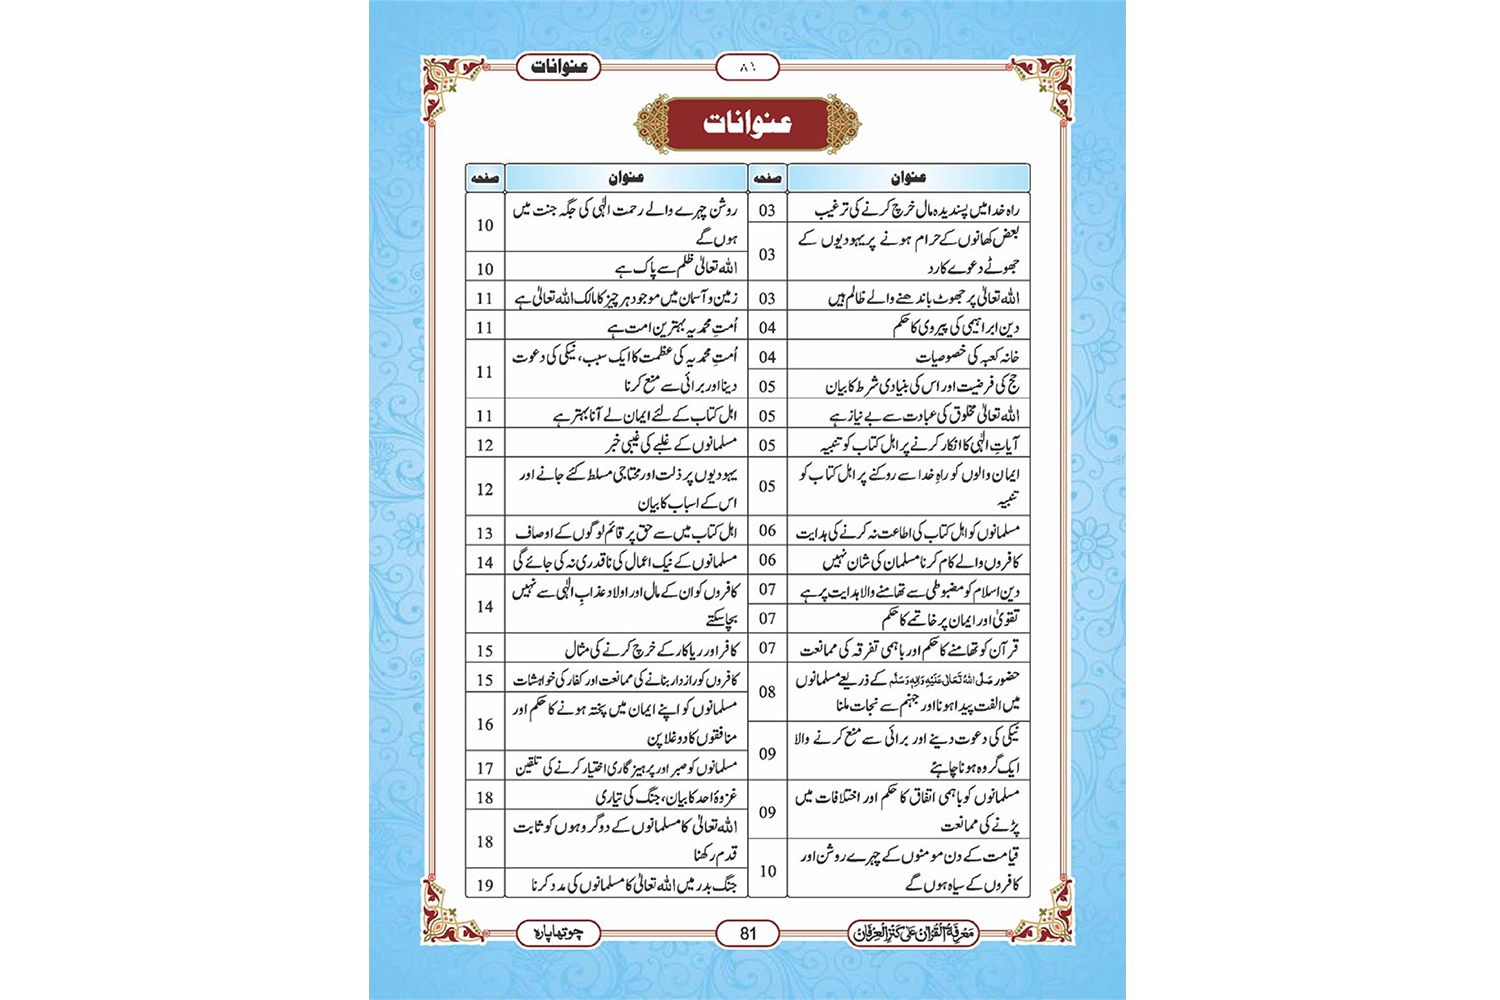 عنوانات
۸۱
عنوانات
عنوان
صفحہ
عنوان
صفحہ
راہ خدا میں پسندیدہ مال خرچ کرنے کی ترغیب
03
بعض کھانوں کے حرام ہونے پر یہودیوں کے
جھوٹے دعوے کا رد
03
اللہ تعالیٰ پر جھوٹ باندھنے والے ظالم ہیں
03
دین ابراہیمی کی پیروی کا حکم
04
خانہ کعبہ کی خصوصیات
04
حج کی فرضیت اور اس کی بنیادی شرط کا بیان
05
اللہ تعالیٰ مخلوق کی عبادت سے بے نیاز ہے
05
آیاتِ الٰہی کا انکار کرنے پر اہل کتاب کو تنبیہ
05
ایمان والوں کو راہِ خدا سے روکنے پر اہل کتاب کو
تنبیہ
05
مسلمانوں کو اہل کتاب کی اطاعت نہ کرنے کی ہدایت
06
کافروں والے کام کرنا مسلمان کی شان نہیں
06
دین اسلام کو مضبوطی سے تھامنے والا ہدایت پر ہے
07
تقویٰ اور ایمان پر خاتمے کا حکم
07
قرآن کو تھامنے کا حکم اور باہمی تفرقہ کی ممانعت
07
حضور صَلَّی اللہُ تَعَالٰی عَلَیْہِ وَاٰلِہٖ وَسَلَّم کے ذریعے مسلمانوں
میں الفت پیدا ہونا اور جہنم سے نجات ملنا
08
نیکی کی دعوت دینے اور برائی سے منع کرنے والا
ایک گروہ ہونا چاہئے
09
مسلمانوں کو باہمی اتفاق کا حکم اور اختلافات میں
پڑنے کی ممانعت
09
قیامت کے دن مومنوں کے چہرے روشن اور
کافروں کے سیاہ ہوں گے
10
روشن چہرے والے رحمت الٰہی کی جگہ جنت میں
ہوں گے
10
اللہ تعالیٰ ظلم سے پاک ہے
10
زمین و آسمان میں موجود ہر چیز کا مالک اللہ تعالیٰ ہے
11
اُمتِ محمدیہ بہترین امت ہے
11
اُمتِ محمدیہ کی عظمت کا ایک سبب، نیکی کی دعوت
دینا اور برائی سے منع کرنا
11
اہل کتاب کے لئے ایمان لے آنا بہتر ہے
11
مسلمانوں کے غلبے کی غیبی خبر
12
یہودیوں پر ذلت اور محتاجی مسلط کئے جانے اور
اس کے اسباب کا بیان
12
اہل کتاب میں سے حق پر قائم لوگوں کے اوصاف
13
مسلمانوں کے نیک اعمال کی ناقدری نہ کی جائے گی
14
کافروں کو ان کے مال اور اولاد عذابِ الٰہی سے نہیں
بچا سکتے
14
کافر اور ریاکار کے خرچ کرنے کی مثال
15
کافروں کو رازدار بنانے کی ممانعت اور کفار کی خواہشات
15
مسلمانوں کو اپنے ایمان میں پختہ ہونے کا حکم اور
منافقوں کا دوغلا پن
16
مسلمانوں کو صبر اور پرہیزگاری اختیار کرنے کی تلقین
17
غزوۂ احد کا بیان، جنگ کی تیاری
18
اللہ تعالیٰ کا مسلمانوں کے دو گروہوں کو ثابت
قدم رکھنا
18
جنگ بدر میں اللہ تعالیٰ کا مسلمانوں کی مدد کرنا
19
مَعْرِفَۃُ الْقُرْآن عَلٰی کَنْزِ الْعِرْفَان
81
چوتھا پارہ